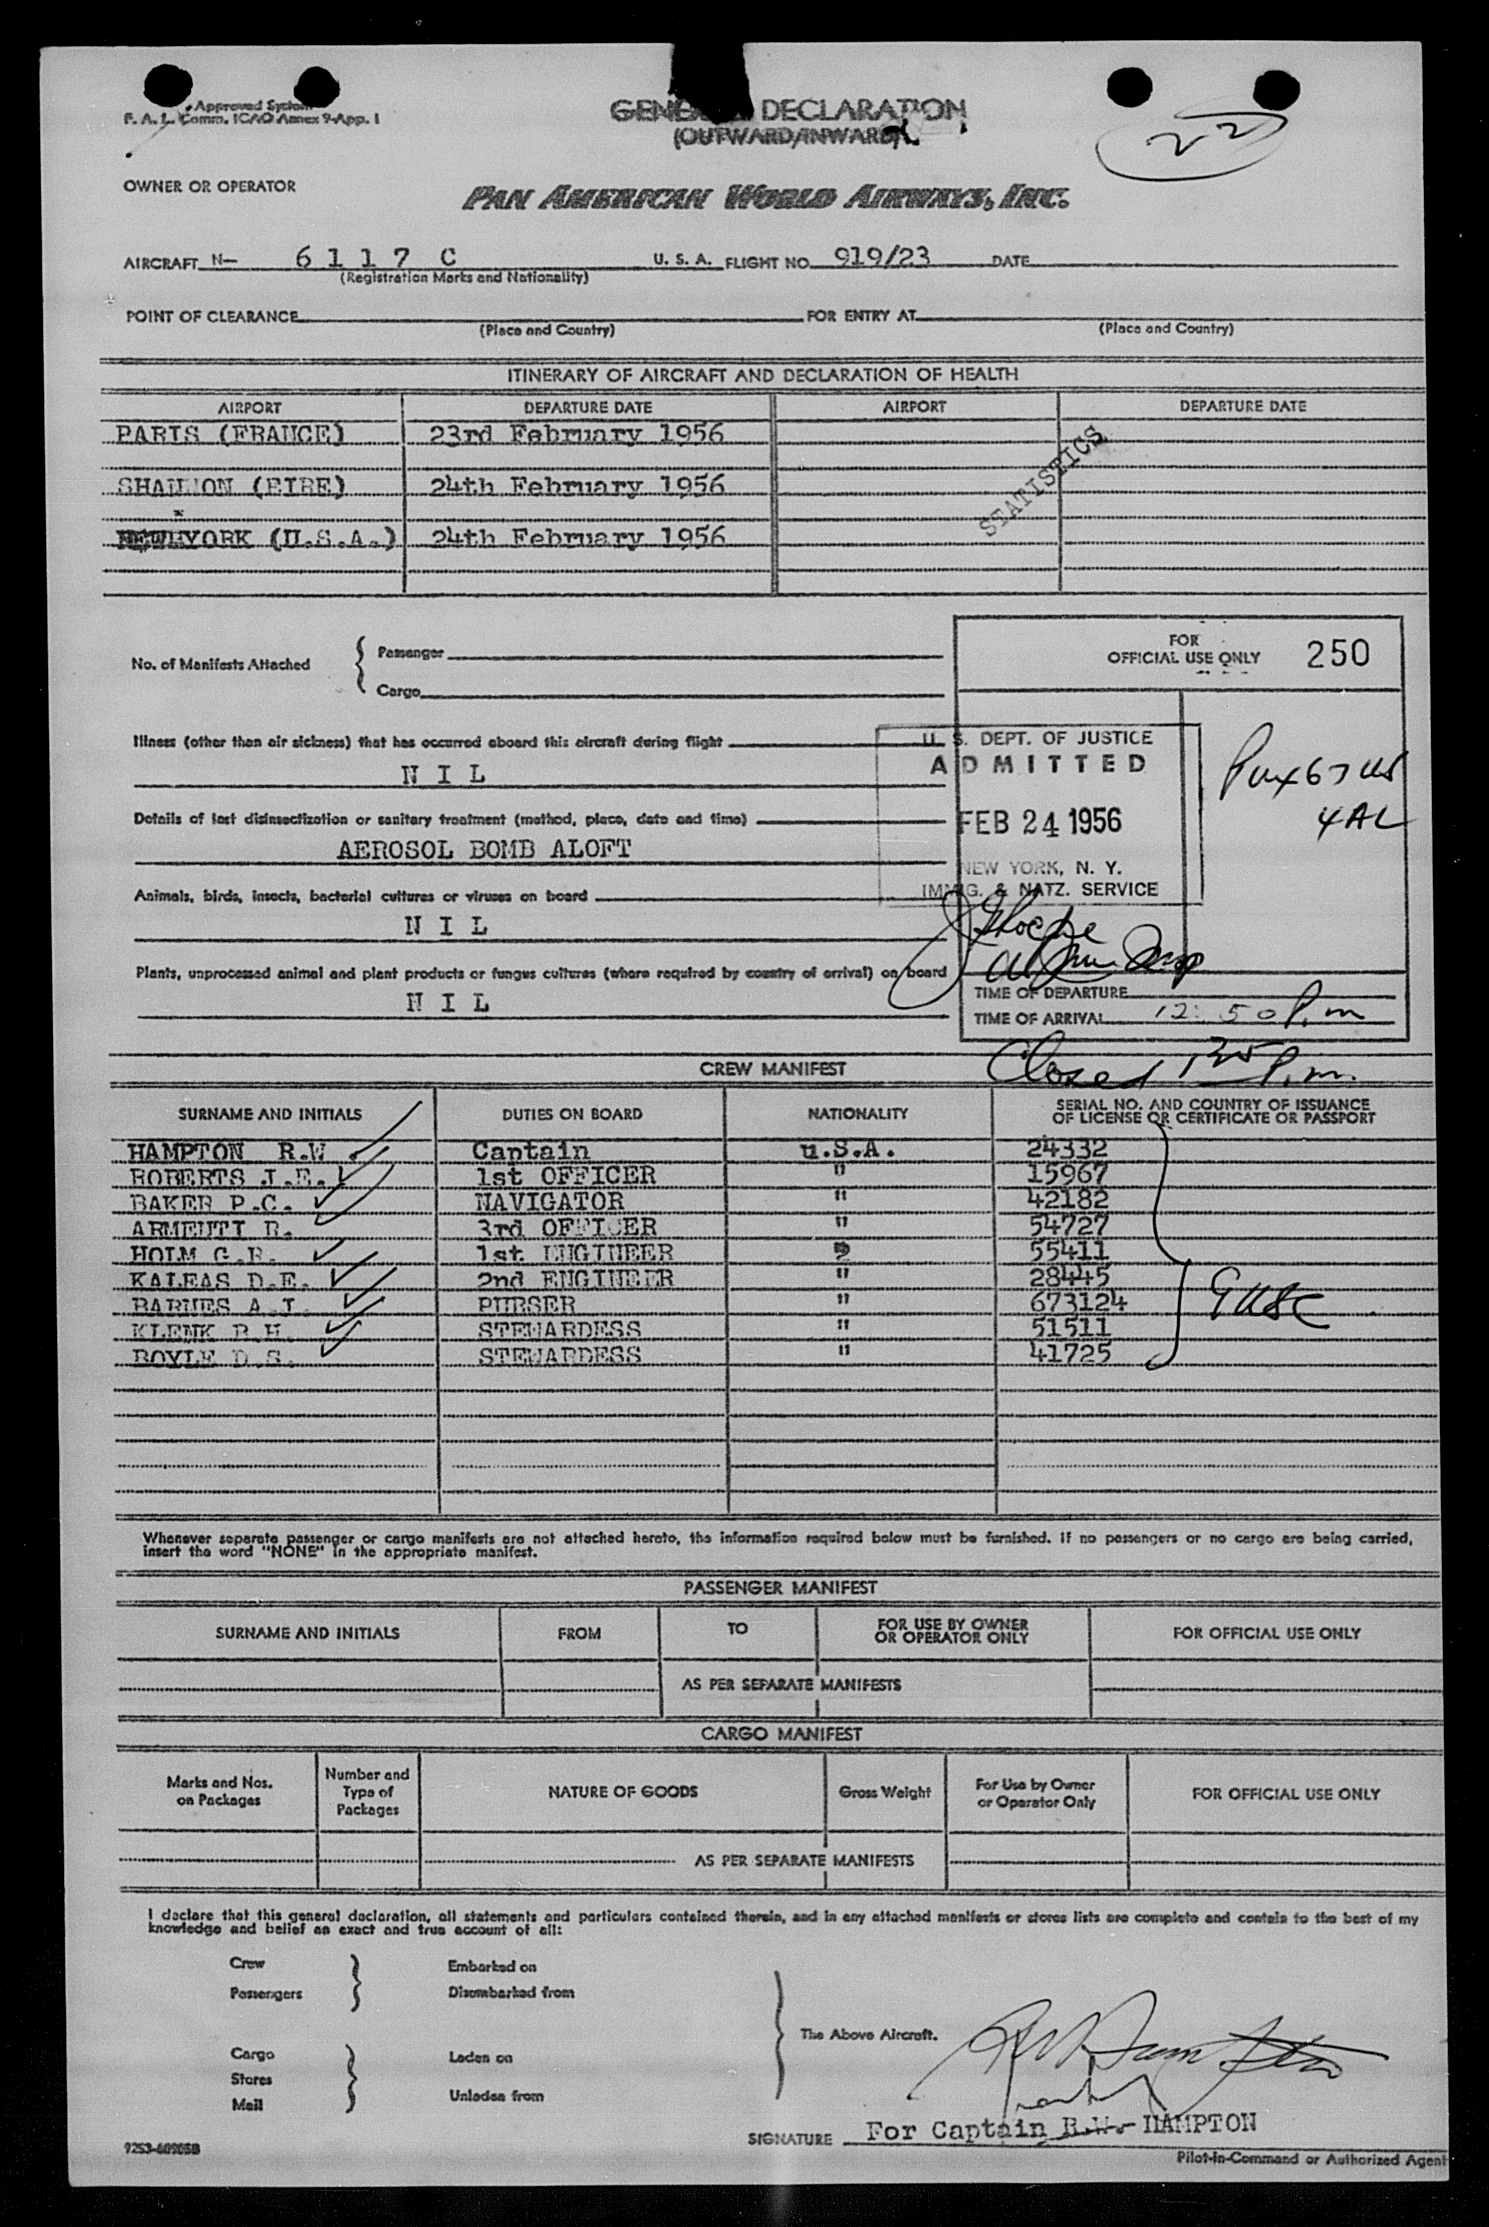 Approved System
F. A. L. Comm. ICAO Annex 9-App. 1
DECLARATION
(OUTWARD/INWARD)
22
OWNER OR OPERATOR
PAN AMERICAN WORLD AIRWAYS, INC.
AIRCRAFT N- 6 1 1 7 C U. S. A. FLIGHT NO. 919/23 DATE
(Registration Marks and Nationality)
POINT OF CLEARANCE FOR ENTRY AT
(Place and Country) (Place and Country)
ITINERARY OF AIRCRAFT AND DECLARATION OF HEALTH
AIRPORT DEPARTURE DATE AIRPORT DEPARTURE DATE
PARIS (FRANCE) 23rd February 1956
STATISTICS
SHANNON (EIRE) 24th February 1956
NEW YORK (U.S.A.) 24th February 1956
No. of Manifests Attached { Passenger
Cargo
FOR
OFFICIAL USE ONLY 250
Illness (other than air sickness) that has occurred aboard this aircraft during flight
N I L
U. S. DEPT. OF JUSTICE
ADMITTED
FEB 24 1956
NEW YORK, N. Y.
IMMIG. & NATZ. SERVICE
4 AL
Details of last disinsectization or sanitary treatment (method, place, date and time)
AEROSOL BOMB ALOFT
Animals, birds, insects, bacterial cultures or viruses on board
N I L
Plants, unprocessed animal and plant products or fungus cultures (where required by country of arrival) on board
N I L
TIME OF DEPARTURE
TIME OF ARRIVAL 12:50 P.m
Closed 1 35 P.m.
CREW MANIFEST
SURNAME AND INITIALS DUTIES ON BOARD NATIONALITY SERIAL NO. AND COUNTRY OF ISSUANCE
OF LICENSE OR CERTIFICATE OR PASSPORT
HAMPTON R.W. Captain u.S.A. 24332
ROBERTS J.E. 1st OFFICER " 15967
BAKER P.C. NAVIGATOR " 42182
ARMENTI R. 3rd OFFICER " 54727
HOLM G.R. 1st ENGINEER " 55411
KALEAS D.E. 2nd ENGINEER " 28445
BARNES A.J. PURSER " 673124
9 USC
KLENK R.H. STEWARDESS " 51511
BOYLE D.S. STEWARDESS " 41725
Whenever separate passenger or cargo manifests are not attached hereto, the information required below must be furnished. If no passengers or no cargo are being carried,
insert the word "NONE" in the appropriate manifest.
PASSENGER MANIFEST
SURNAME AND INITIALS FROM TO FOR USE BY OWNER
OR OPERATOR ONLY FOR OFFICIAL USE ONLY
AS PER SEPARATE MANIFESTS
CARGO MANIFEST
Marks and Nos.
on Packages Number and
Type of
Packages NATURE OF GOODS Gross Weight For Use by Owner
or Operator Only FOR OFFICIAL USE ONLY
AS PER SEPARATE MANIFESTS
I declare that this general declaration, all statements and particulars contained therein, and in any attached manifests or stores lists are complete and contain to the best of my
knowledge and belief an exact and true account of all:
Crew Embarked on
Passengers Disembarked from
The Above Aircraft.
Cargo Laden on
Stores
Mail Unladen from
SIGNATURE For Captain R.W. HAMPTON
Pilot-in-Command or Authorized Agent